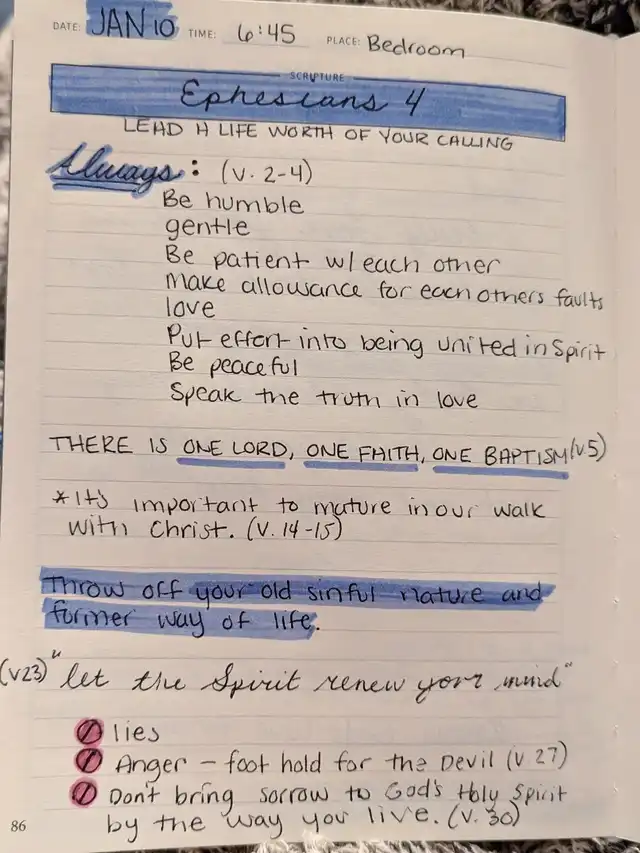 DATE: JAN 10 TIME: 6:45 PLACE: Bedroom
SCRIPTURE
Ephesians 4
LEAD A LIFE WORTH OF YOUR CALLING
Always: (v. 2-4)
Be humble
gentle
Be patient w/ each other
Make allowance for each others faults
love
Put effort into being united in Spirit
Be peaceful
Speak the truth in love
THERE IS ONE LORD, ONE FAITH, ONE BAPTISM (v.5)
*It's important to mature in our walk
with Christ. (v. 14-15)
Throw off your old sinful nature and
former way of life.
(v23) "let the Spirit renew your mind"
lies
Anger – foot hold for the Devil (v 27)
Don't bring sorrow to God's Holy Spirit
by the way you live. (v. 30)
86